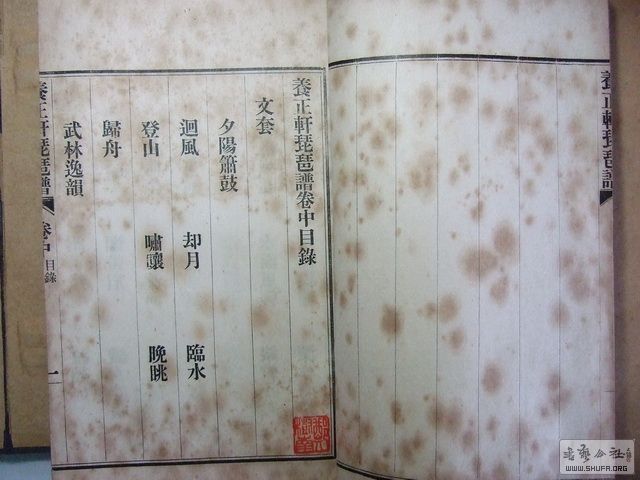 養正軒琵琶譜
養正軒琵琶譜卷中目錄
文套
夕陽簫鼓
迴風 却月 臨水
登山 嘯讓 晚眺
歸舟
武林逸韻
養正軒琵琶譜 卷中 目錄 一
WWW.SHUFA.ORG